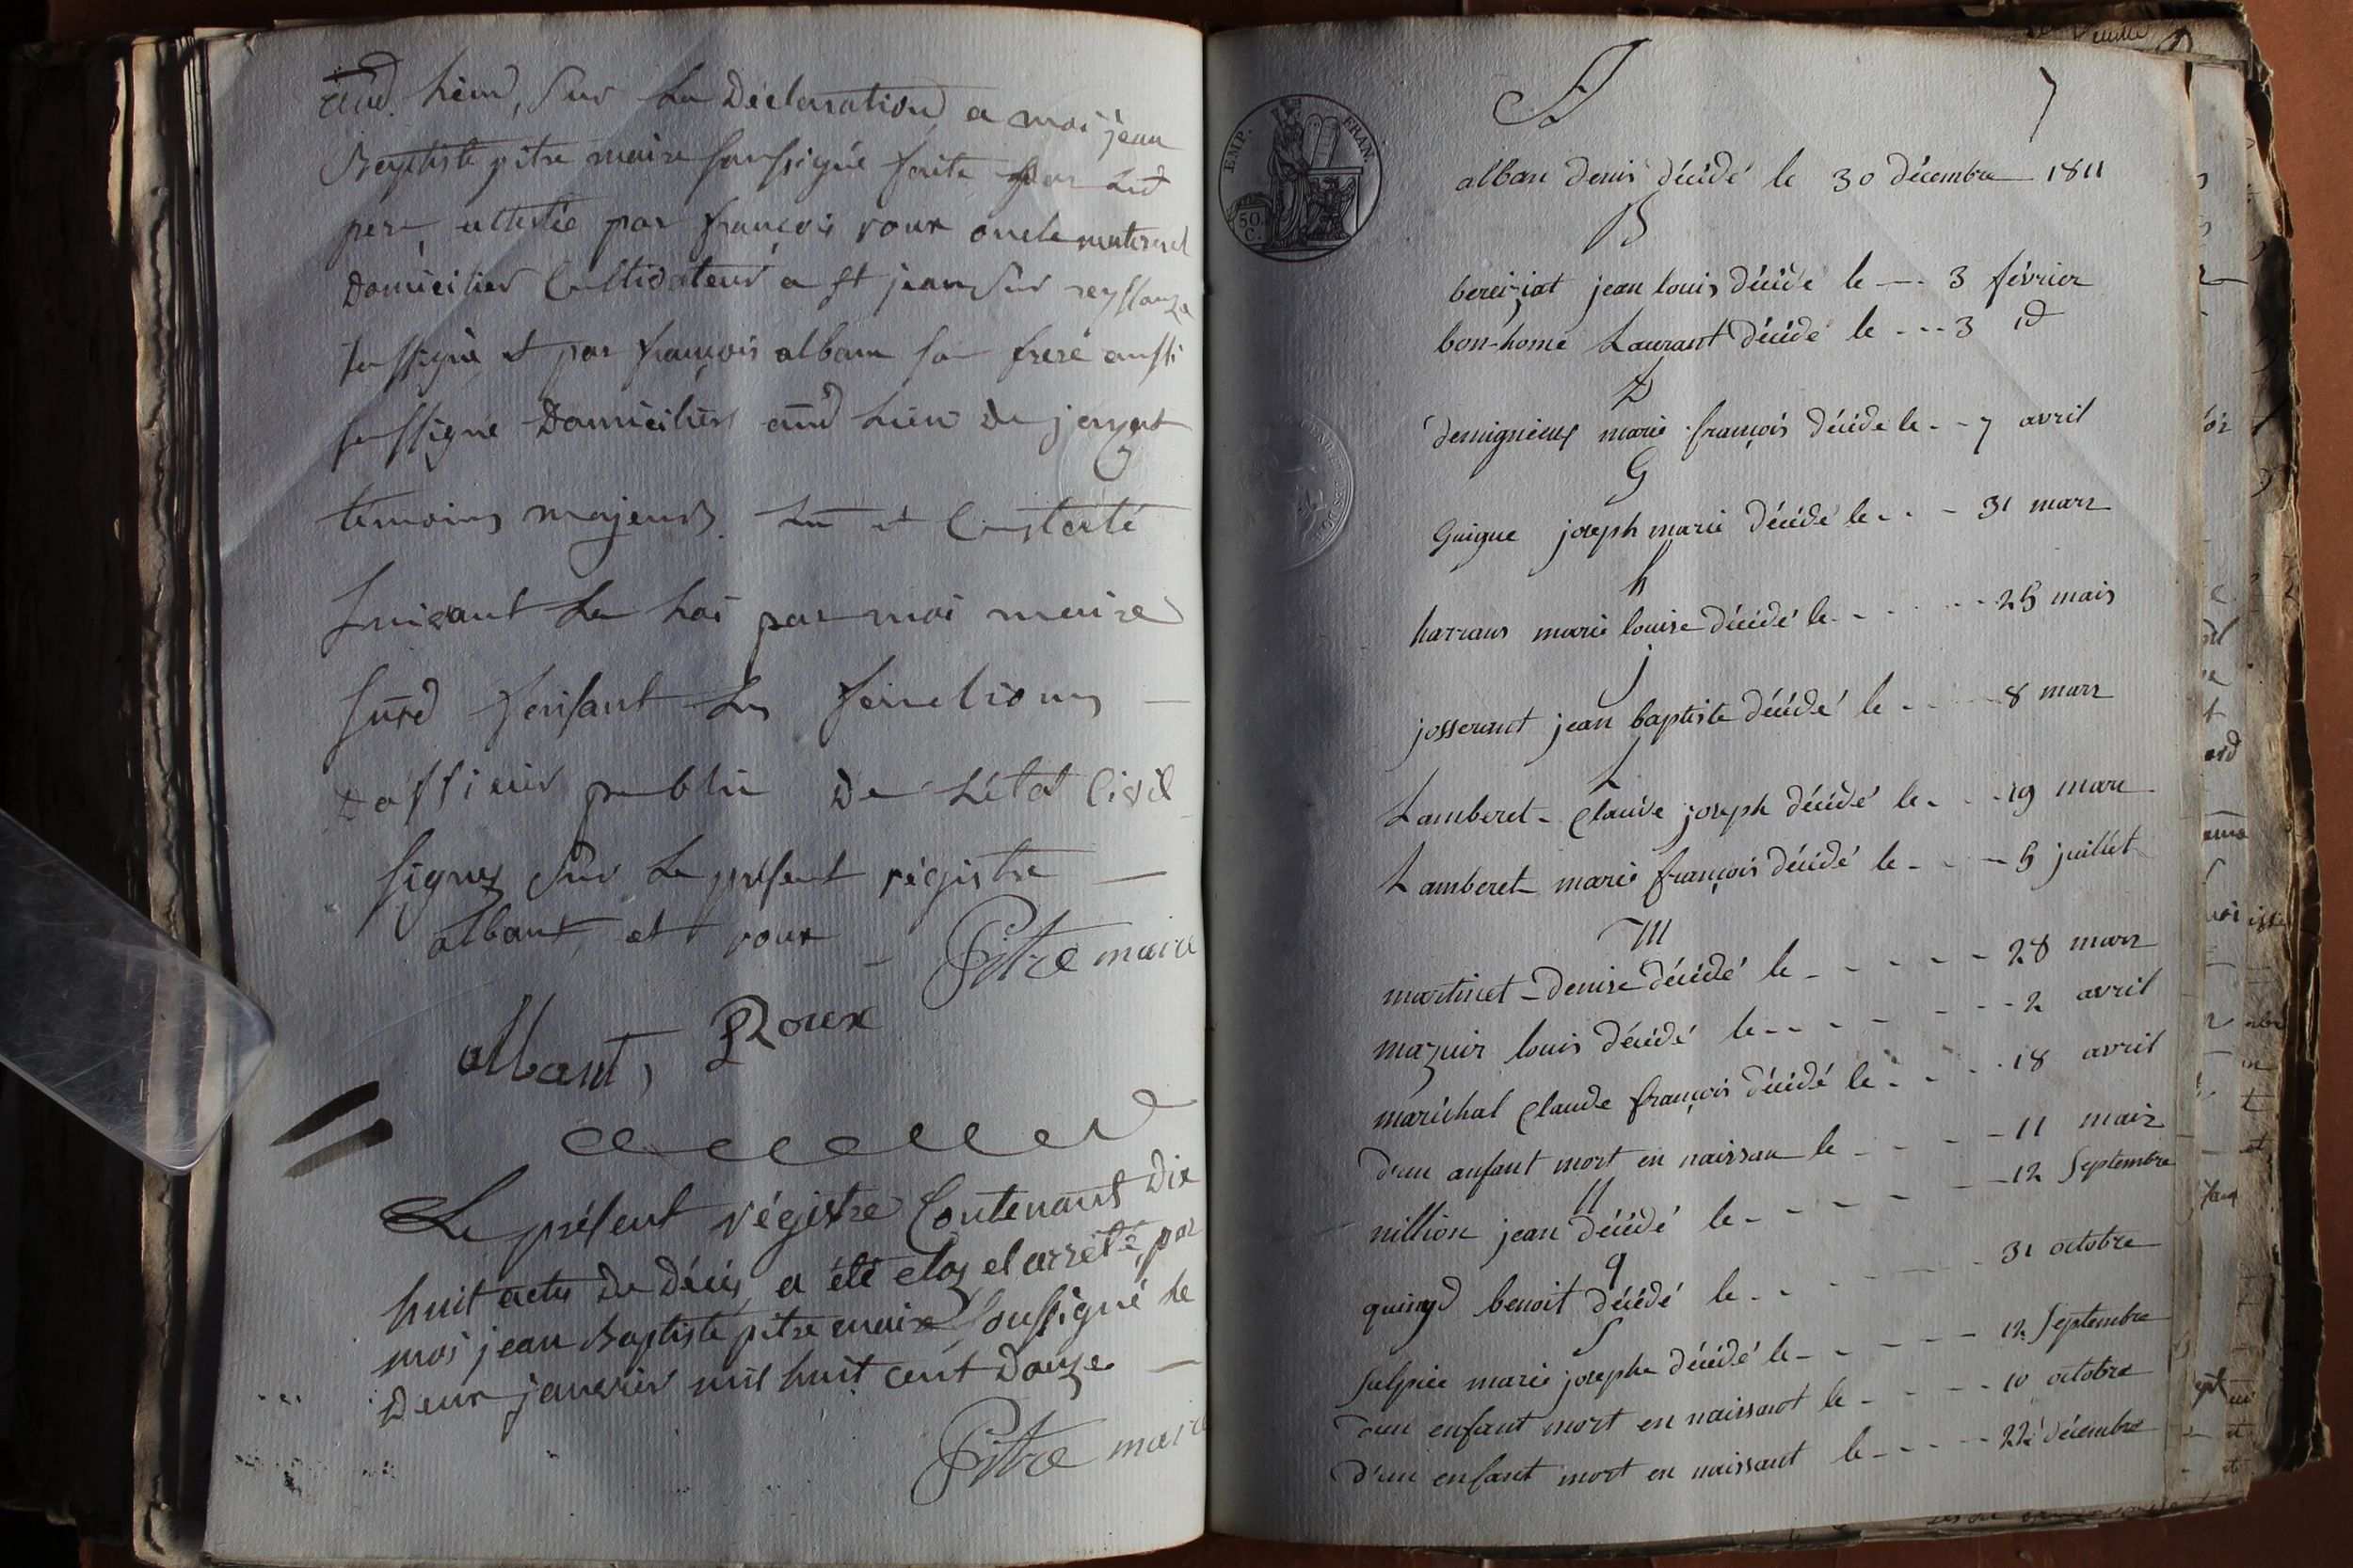 aud. lieu, sur la Déclaration a moi jean
Baptiste pitre maire soussigné faite par led
pere, attestée par françois roux oncle maternel
Domicilier Cultivateur a st jean sur reyssouze
soussigné et par françois alban son frere aussi
soussigné Domiciliés aud lieu de jayat
temoins majeurs. Lu et Constaté
suivant la Loi par moi maire
susd faisant les fonctions
D'officier public De L'état Civil
signés sur Le present régistre
albant et roux
Pitre maire
albant, Roux
Le présent régistre Contenant dix
huit actes De Décès a été clos et arrêté par
moi jean Baptiste pitre maire soussigné le
Deux janvier mil huit cent Douze
Pitre maire
A 7
EMP. FRAN.
50. C.
alban denis décédé le 30 décembre 1811
B
bereiziat jean louis décédé le 3 février
bon-home Laurant décédé le 3 id
D
demigrieux marie françois décédé le 7 avril
G
Guigue joseph marie décédé le 31 mars
h
harraus marie louise décédé le 25 mais
j
josserant jean baptiste décédé le 8 mars
L
Lamberet Claude joseph décédé le 19 mars
Lamberet marie françois décédé le 5 juillet
M
martinet Denise décédé le 28 mars
mazuir louis décédé le 2 avril
maréchal Claude françois décédé le 18 avril
d'un anfant mort en naissan le 11 mais
N
nillion jean décédé le 12 Septembre
q
benoit décédé le 31 octobre
S
Sulpice marie josephe décédé le 12 Septembre
d'un enfant mort en naissant le 10 octobre
d'un enfant mort en naissant le 22 décembre